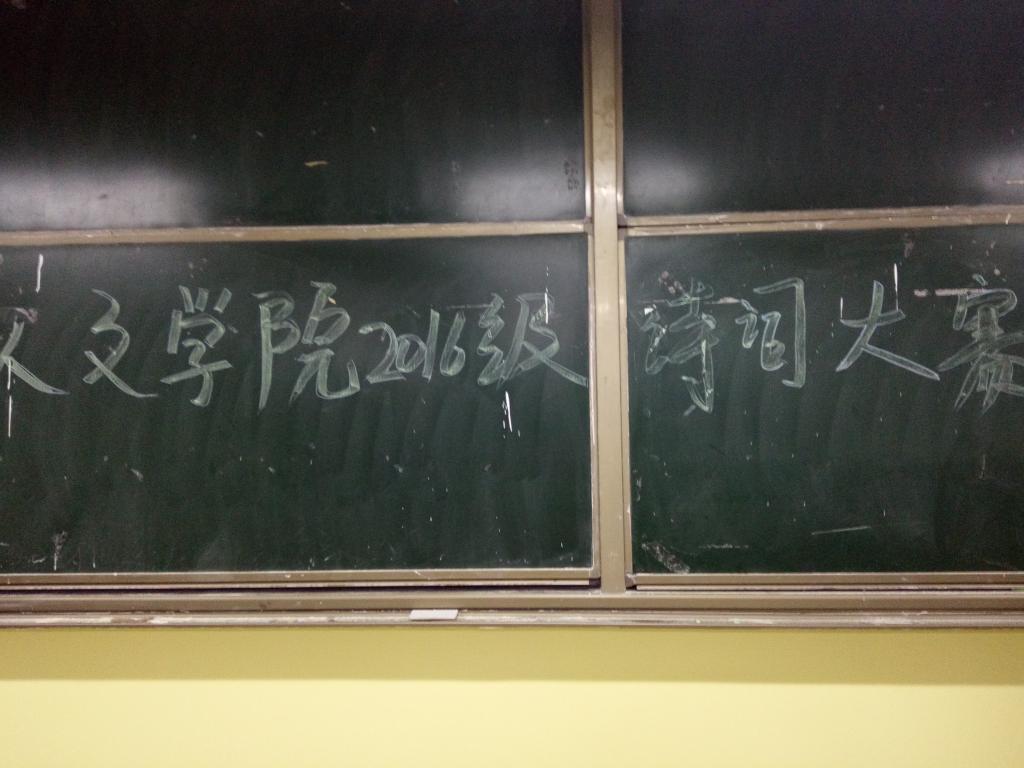 文学院2016级 诗词大赛